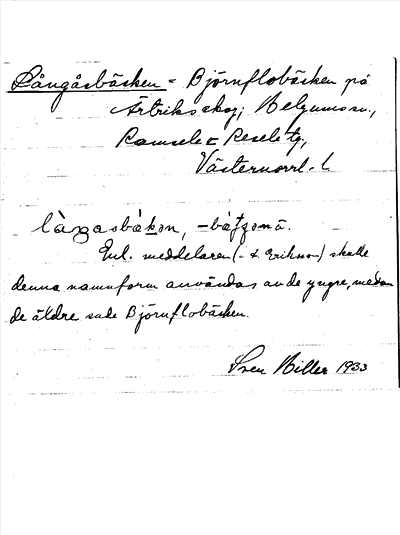 Långåsbäcken = Björnflobäcken på
Ärtrikskog; Helgumssn.,
Ramsele & Resele tg.,
Västernorrl. l
Enl. meddelaren ( Erikson) skulle
denna namnform användas av de yngre, medan
de äldre sade Björnflobäcken.
Sven Hiller 1933